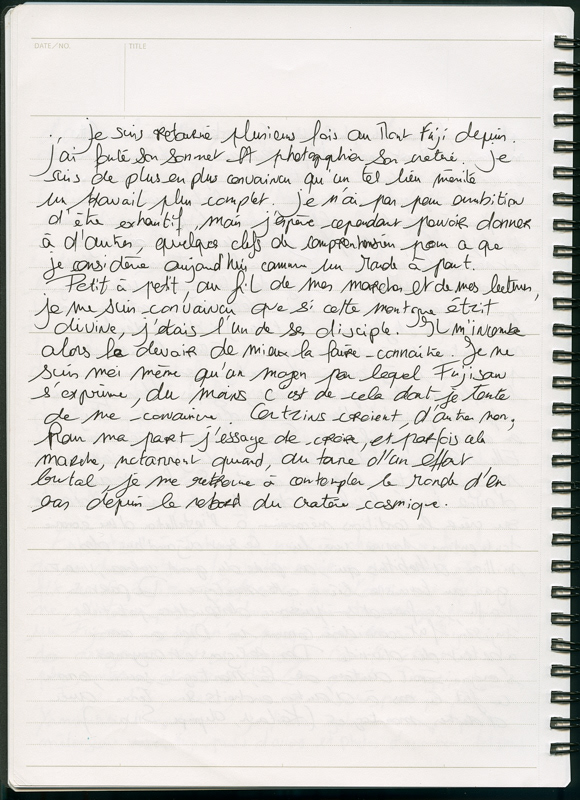 DATE/NO. TITLE
.. je suis retourné plusieurs fois au Mont Fuji depuis.
j'ai foulé son sommet et photographier son cratère. Je
suis de plus en plus convaincu qu'un tel lieu mérite
un travail plus complet. je n'ai pas pour ambition
d'être exhaustif, mais j'espère cependant pouvoir donner
à d'autres, quelques clefs de compréhension pour ce que
je considère aujourd'hui comme un monde à part.
Petit à petit, au fil de mes marches et de mes lectures,
je me suis convaincu que si cette montagne était
divine, j'étais l'un de ses disciple. Il m'incombe
alors le devoir de mieux la faire connaître. Je ne
suis moi même qu'un moyen par lequel Fujisan
s'exprime, du moins c'est de cela dont je tente
de me convaincre. Certains croient, d'autres non,
Pour ma part j'essaye de croire, et parfois cela
marche, notamment quand, au terme d'un effort
brutal, je me retrouve à contempler le monde d'en
bas depuis le rebord du cratère cosmique.